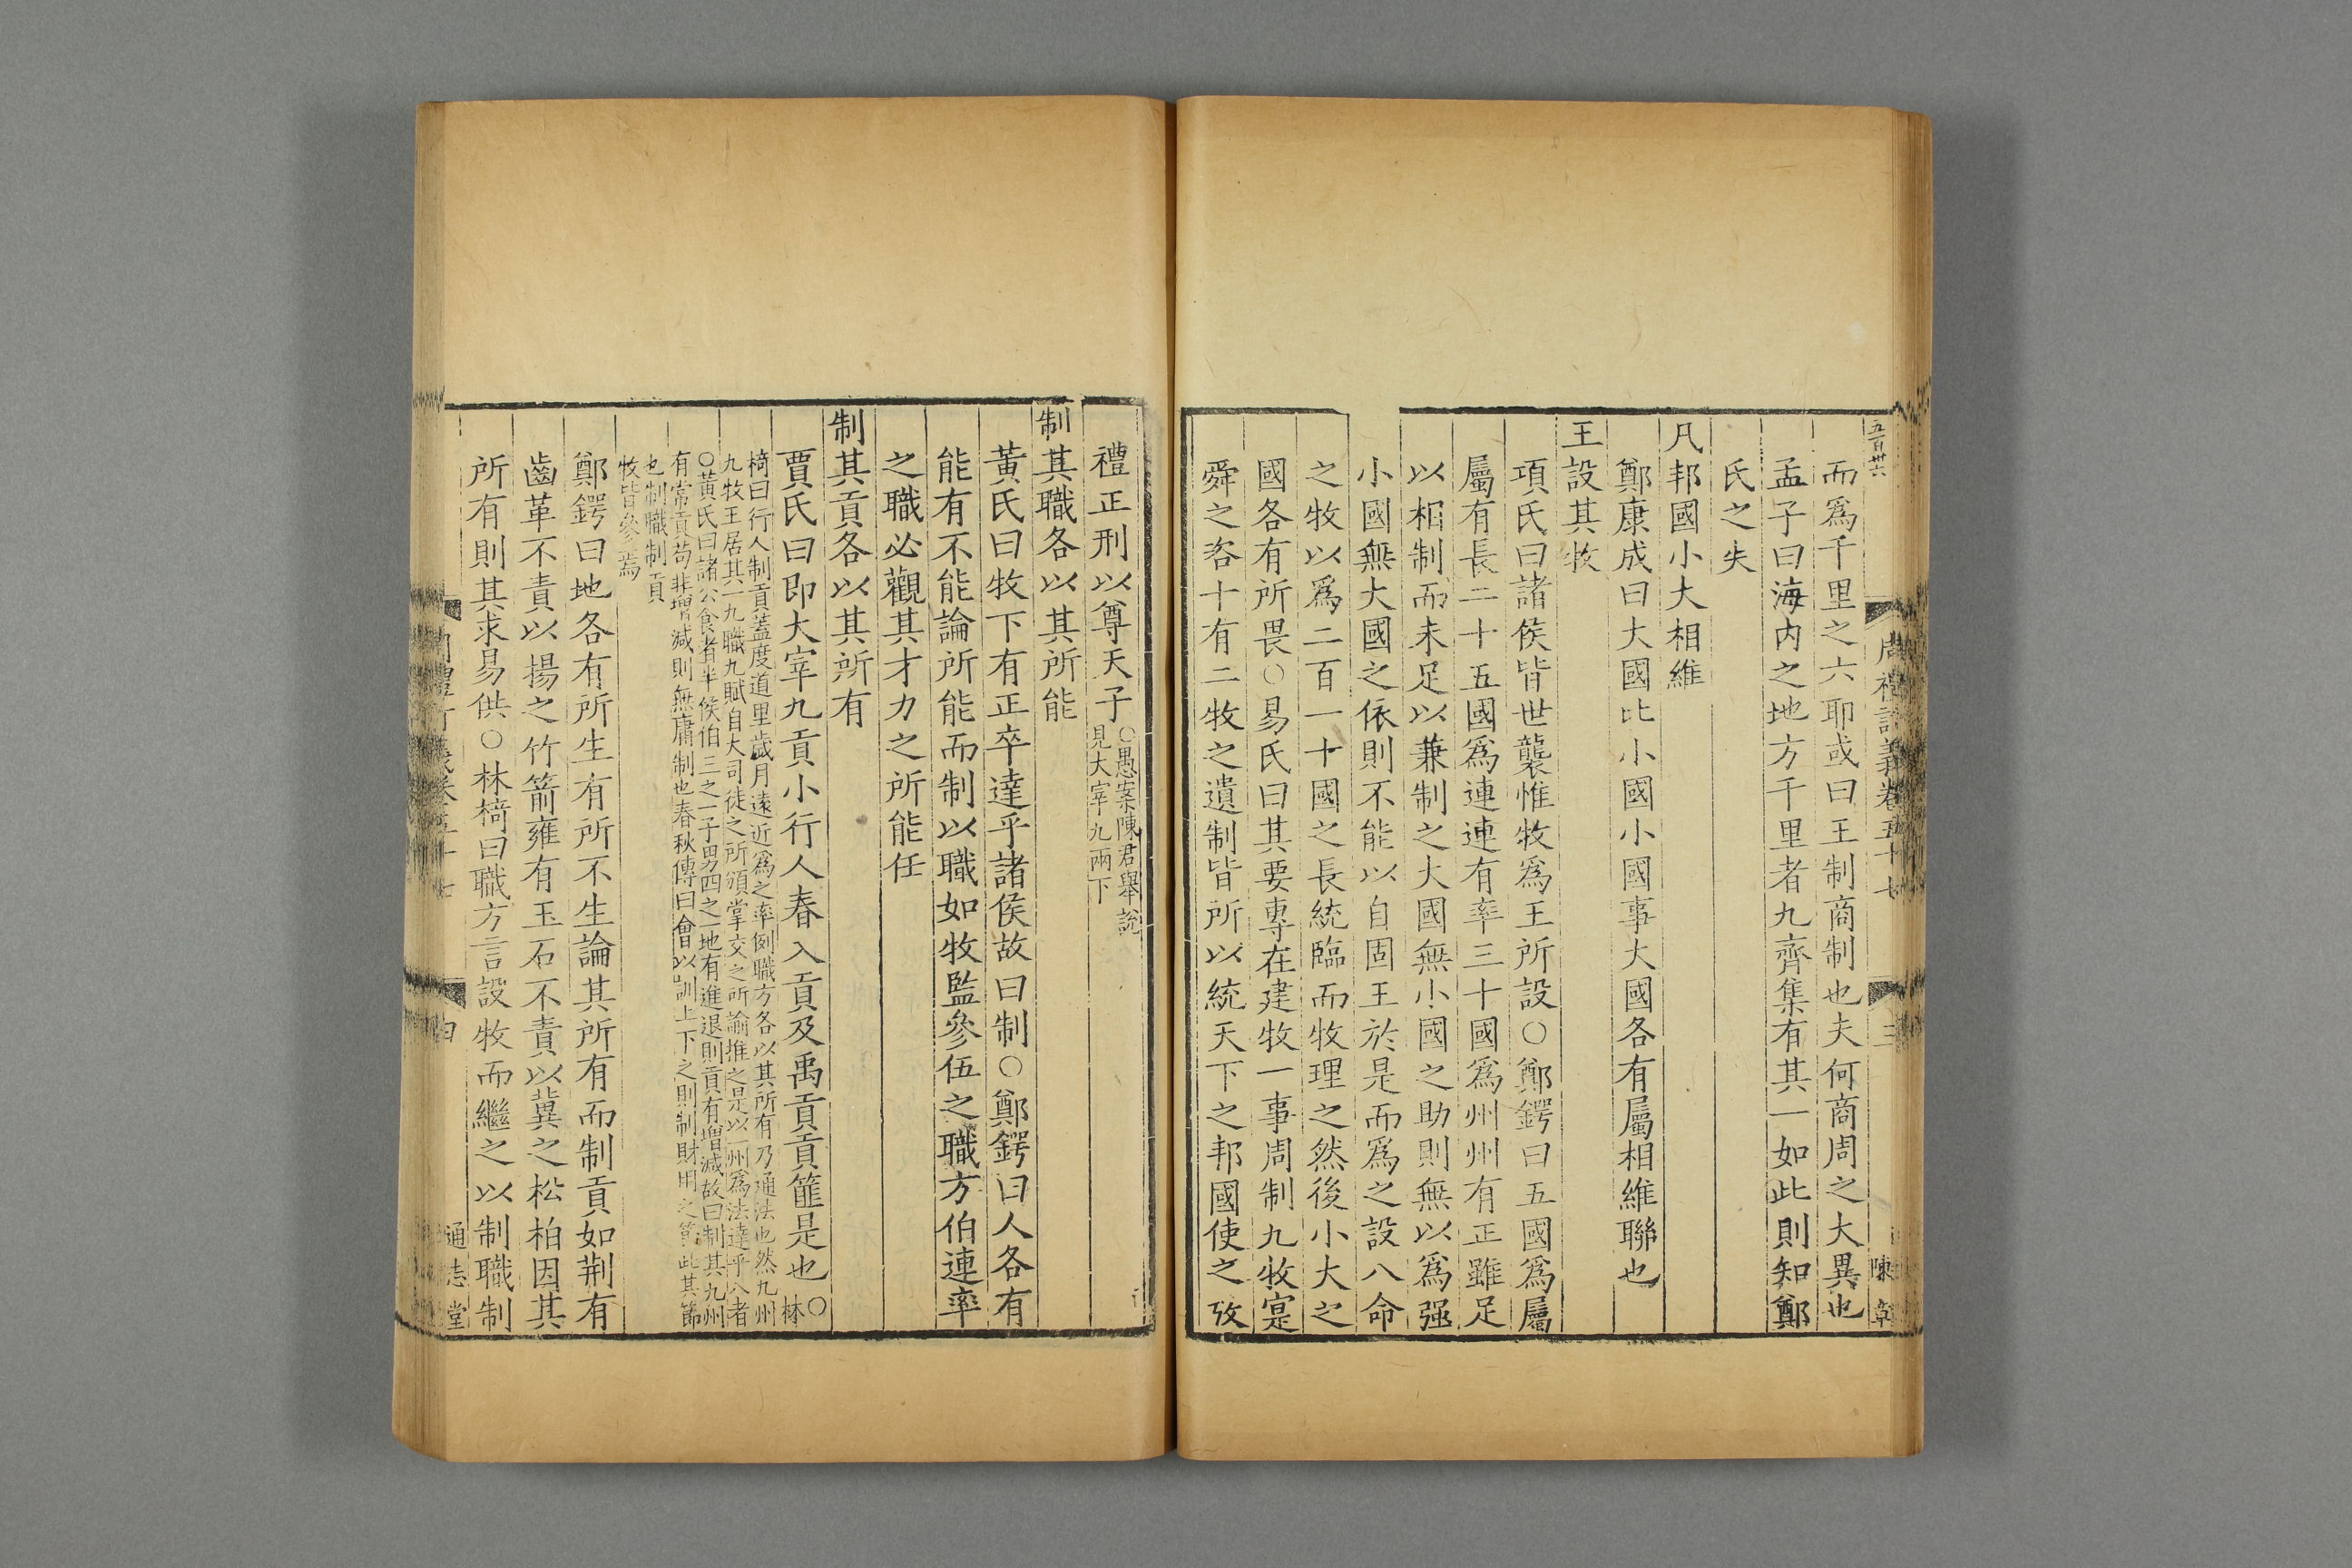 五百卅六
周禮訂義卷五十七
三
陳章
而爲千里之六耶或曰王制商制也夫何商周之大異也
孟子曰海内之地方千里者九齊集有其一如此則知鄭
氏之失
凡邦國小大相維
鄭康成曰大國比小國小國事大國各有屬相維聯也
王設其牧
項氏曰諸侯皆世襲惟牧爲王所設○鄭鍔曰五國爲屬
屬有長二十五國爲連連有率三十國爲州州有正雖足
以相制而未足以兼制之大國無小國之助則無以爲强
小國無大國之依則不能以自固王於是而爲之設八命
之牧以爲二百一十國之長統臨而牧理之然後小大之
國各有所畏○易氏曰其要專在建牧一事周制九牧寔
舜之咨十有二牧之遺制皆所以統天下之邦國使之攷
禮正刑以尊天子
○愚案陳君舉說
見大宰九兩下
制其職各以其所能
黃氏曰牧下有正卒達乎諸侯故曰制○鄭鍔曰人各有
能有不能論所能而制以職如牧監參伍之職方伯連率
之職必觀其才力之所能任
制其貢各以其所有
賈氏曰即大宰九貢小行人春入貢及禹貢貢篚是也
○林
椅曰行人制貢蓋度道里歲月遠近爲之率例職方各以其所有乃通法也然九州
九牧王居其一九職九賦自大司徒之所頒掌交之所諭推之是以一州爲法達乎八者
○黃氏曰諸公食者半侯伯三之一子男四之一地有進退則貢有增減故曰制其九州
有常貢苟非增減則無庸制也春秋傳曰會以訓上下之則制財用之節此其節
也制職制貢
牧皆參焉
鄭鍔曰地各有所生有所不生論其所有而制貢如荆有
齒革不責以揚之竹箭雍有玉石不責以冀之松柏因其
所有則其求易供○林椅曰職方言設牧而繼之以制職制
周禮訂義卷五十七
四
通志堂